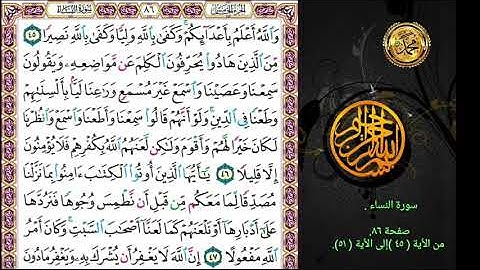 سورة النساء
٨٦
الجزء الخامس
وَاللَّهُ أَعْلَمُ بِأَعْدَائِكُمْ وَكَفَىٰ بِاللَّهِ وَلِيًّا وَكَفَىٰ بِاللَّهِ نَصِيرًا ٤٥
مِنَ الَّذِينَ هَادُوا يُحَرِّفُونَ الْكَلِمَ عَن مَوَاضِعِهِ وَيَقُولُونَ
سَمِعْنَا وَعَصَيْنَا وَاسْمَعْ غَيْرَ مُسْمَعٍ وَرَاعِنَا لَيًّا بِأَلْسِنَتِهِمْ
وَطَعْنًا فِي الدِّينِ وَلَوْ أَنَّهُمْ قَالُوا سَمِعْنَا وَأَطَعْنَا وَاسْمَعْ وَانظُرْنَا
لَكَانَ خَيْرًا لَهُمْ وَأَقْوَمَ وَلَٰكِن لَعَنَهُمُ اللَّهُ بِكُفْرِهِمْ فَلَا يُؤْمِنُونَ
إِلَّا قَلِيلًا ٤٦ يَا أَيُّهَا الَّذِينَ أُوتُوا الْكِتَابَ آمِنُوا بِمَا نَزَّلْنَا
مُصَدِّقًا لِمَا مَعَكُم مِن قَبْلِ أَن نَطْمِسَ وُجُوهًا فَنَرُدَّهَا
عَلَىٰ أَدْبَارِهَا أَوْ نَلْعَنَهُمْ كَمَا لَعَنَّا أَصْحَابَ السَّبْتِ وَكَانَ أَمْرُ
اللَّهِ مَفْعُولًا ٤٧ إِنَّ اللَّهَ لَا يَغْفِرُ أَن يُشْرَكَ بِهِ وَيَغْفِرُ مَا دُونَ
محمد
بسم الله الرحمن الرحيم
سورة النساء .
صفحة ٨٦
من الأية ( ٤٥ )إلى الأية ( ٥١).